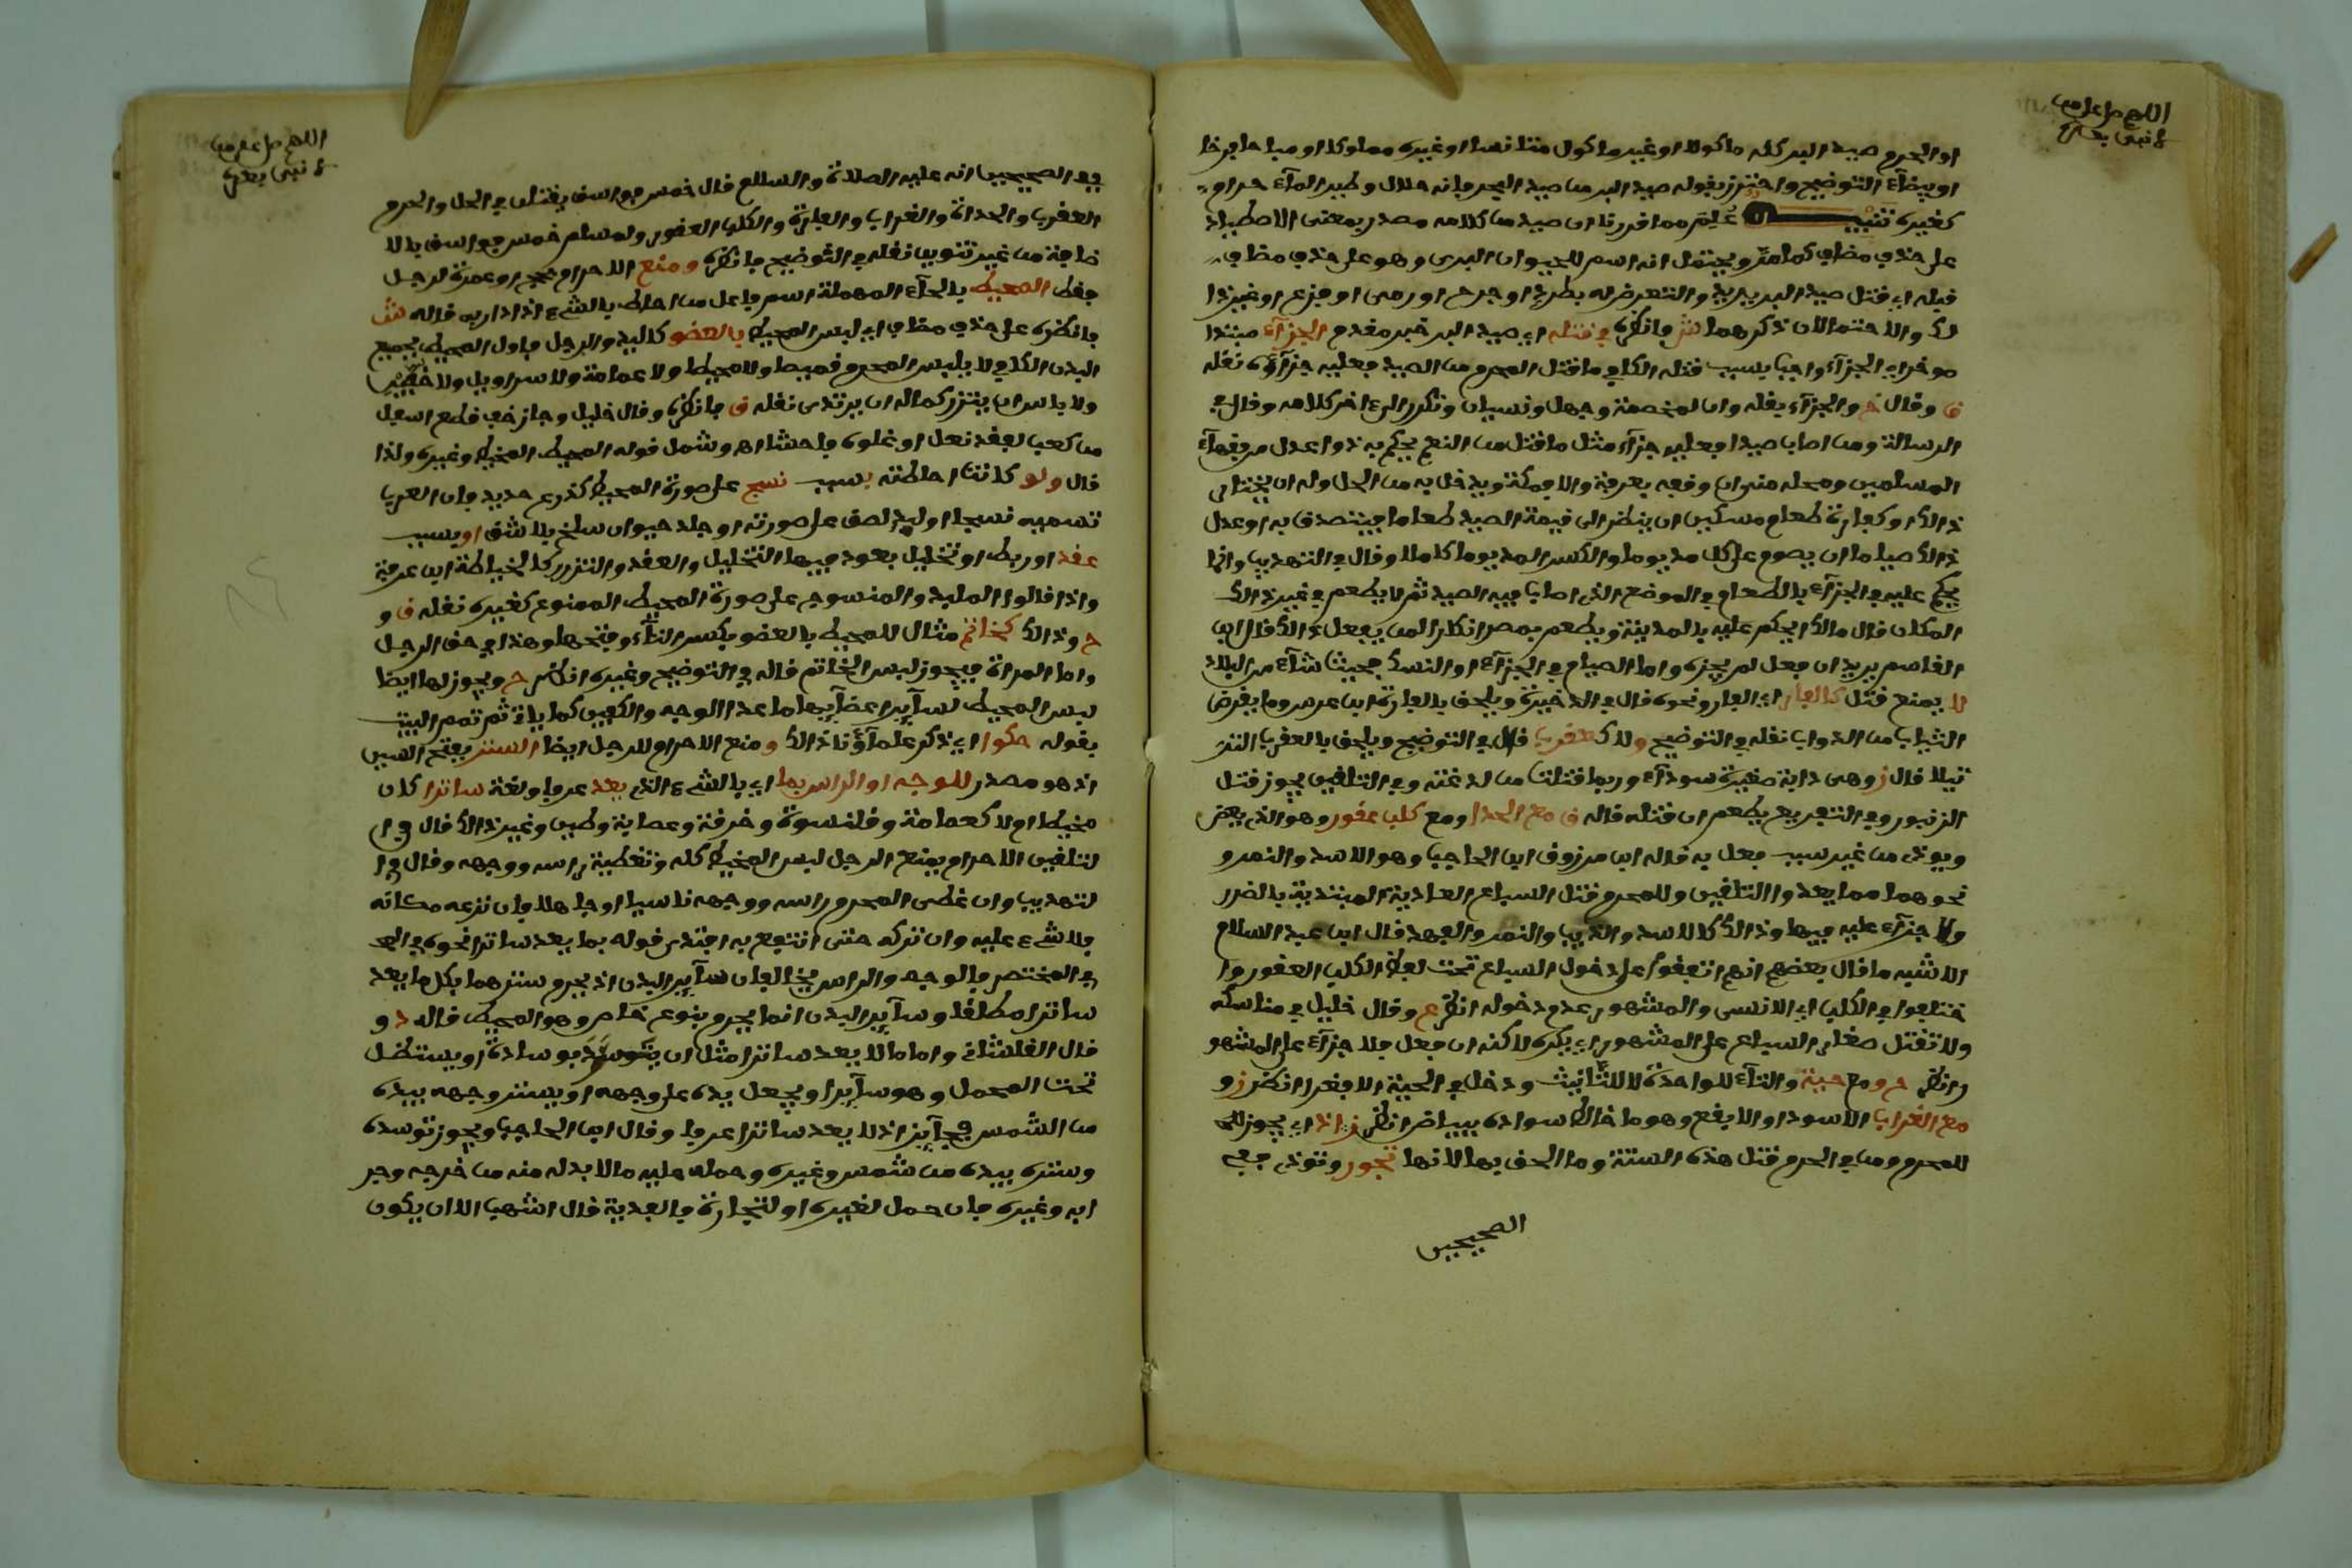 اللهم صل على من
لا نبي بعده
او الحرم صيد البر كله ماكولا او غير ماكول متانسا او غيره مملوكا او مباحا فرخا
او بيضا في التوضيح واحترز بقوله صيد البر من صيد البحر فانه حلال وطير الماء حرام
كغيره تنبيه علم مما قررنا ان صيد من كلامه مصدر بمعنى الاصطياد
على حذف مضاف كما مر ويحتمل انه اسم للحيوان البري وهو على حذف مضاف
قبله اي قتل صيد البر يريد والتعرض له بطرد او جرح او رمي او فزع او غير ذا
لك والاحتمالان ذكرهما فانظره في قتله اي صيد البر خبر مقدم الجزاء مبتدا
موخر اي الجزاء واجب بسبب قتله الكافي ما قتل المحرم من الصيد فعليه جزاؤه نقله
ق وقال خ والجزاء بقتله وان لمخمصة وجهل ونسيان وتكرر الى اخر كلامه وقال في
الرسالة ومن اصاب صيدا فعليه جزاء مثل ما قتل من النعم يحكم به ذوا عدل من فقهاء
المسلمين ومحله منى ان وقف به بعرفة والا فمكة ويدخل به من الحل وله ان يختار
ذالك او كفارة طعام مسكين ان ينظر الى قيمة الصيد طعاما فيتصدق به او عدل
ذالك صياما ان يصوم عن كل مد يوما ولكسر المد يوما كاملا وقال في التهذيب وانما
يحكم عليه في الجزاء بالطعام في الموضع الذي اصاب فيه الصيد ثم لا يطعم في غير ذالك
المكان قال مالك ايحكم عليه بالمدينة ويطعم بمصر انكارا لمن يفعل ذالك قال ابن
القاسم يريد ان فعل لم يجزه واما الصيام في الجزاء او النسك فحيث شاء من البلاد
لا يمنع قتل كالفار اي الفار ونحوه قال في الذخيرة ويلحق بالفارة ابن عرس وما يقرض
الثياب من الدواب نقله في التوضيح ولا كعقرب قال في التوضيح ويلحق بالعقرب الرتيلا
تيلا قال ز وهي دابة صغيرة سوداء وربما قتلت من لدغته وفي التلقين يجوز قتل
الزنبور وفي التفريع يطعم ان قتله قاله ق مع الحدا ومع كلب عقور وهو الذي يعض
ويوذي من غير سبب فعل به قاله ابن مرزوق ابن الحاجب وهو الاسد والنمر و
نحوهما مما يعدوا التلقين وللمحرم قتل السباع العادية المبتدية بالضرر
ولا جزاء عليه فيها وذالك كالاسد والذيب والنمر والفهد قال ابن عبد السلام
الاشبه ما قال بعضهم انهم اتفقوا على دخول السباع تحت لفظ الكلب العقور وا
ختلفوا في الكلب اي الانسي والمشهور عدم دخوله انظر ع وقال خليل في مناسكه
ولا تقتل صغار السباع على المشهور اي يكره لاكنه ان فعل فلا جزاء على المشهو
ر انظر ح ومع حية والتاء للواحدة لا للتانيث ودخل في الحية الافعى انظر ز و
مع الغراب الاسود او الابقع وهو ما خالط سواده بياض انظر ز اذ اي يجوز للحـ
للمحرم ومن في الحرم قتل هذه الستة وما الحق بها لانها تجور وتوذي ففي
الصحيحين
اللهم صل على من
لا نبي بعده
ففي الصحيحين انه عليه الصلاة والسلام قال خمس فواسق يقتلن في الحل والحرم
العقرب والحداة والغراب والفارة والكلب العقور ولمسلم خمس فواسق بالا
ضافة من غير تنوين نقله في التوضيح فانظره ومنع الاحرام بحج او عمرة لرجل
فقط المحيط بالحاء المهملة اسم فاعل من احاط بالشيء اذا دار به قاله
فانظره على حذف مضاف اي لبس المحيط بالعضو كاليد والرجل فاول المحيط بجميع
البدن الكافي لا يلبس المحرم قميصا ولا محيطا ولا عمامة ولا سراويل ولا خفين
ولا باس ان يتزر كما له ان يرتدي نقله ق فانظره وقال خليل وجاز خف قطع اسفل
من كعب لفقد نعل او غلوه فاحشا اه وشمل قوله المحيط المخيط وغيره ولذا
قال ولو كانت احاطته بسبب نسج على صورة المحيط كدرع حديد فان العرب
تسميه نسجا او لبد لصق على صورته او جلد حيوان سلخ بلا شق او بسبب
عقد او ربط او تخليل بعود فيها التخليل والعقد والتزرر كالخياطة ابن عرفة
واذا قالوا الملبد والمنسوج على صورة المحيط الممنوع كغيره نقله ق و
ح وذالك كخاتم مثال للمحيط بالعضو بكسر التاء وفتحها وهذا في حق الرجل
واما المراة فيجوز لبس الخاتم قاله في التوضيح وغيره انظر ح ويجوز لها ايضا
لبس المحيط لسائر اعضائها ما عدا الوجه والكفين كما ياتي ثم تمم البيت
بقوله حكوا اي ذكر علماؤنا ذالك ومنع الاحرام للرجل ايضا الستر بفتح السين
اذ هو مصدر للوجه او الراس بما اي بالشيء الذي يعد عرفا ولغة ساترا كان
مخيطا ام لا كعمامة وقلنسوة وخرقة وعصابة وطين وغير ذالك قال في ا
لتلقين الاحرام يمنع الرجل لبس المخيط كله وتغطية راسه ووجهه وقال في ا
لتهذيب وان غطى المحرم راسه ووجهه ناسيا او جاهلا فان نزعه مكانه
فلا شيء عليه وان تركه حتى انتفع به افتدى قوله بما يعد ساترا نحوه في الحـ
في المختصر فالوجه والراس يخالفان سائر البدن اذ يحرم سترهما بكل ما يعد
ساترا مطلقا وسائر البدن انما يحرم بنوع خاص وهو المحيط قاله د و
قال القلشاني واما ما لا يعد ساترا مثل ان يتوسد بوسادة او يستظل
تحت المحمل وهو سائر او يجعل يده على وجهه او يستر وجهه بيده
من الشمس فجائز اذ لا يعد ساترا عرفا وقال ابن الحاجب ويجوز توسده
وستره بيده من شمس وغيره وحمله عليه ما لا بد له منه من خرجه وجر
ابه وغيره فان حمل لغيره او لتجارة فالفدية قال اشهب الا ان يكون